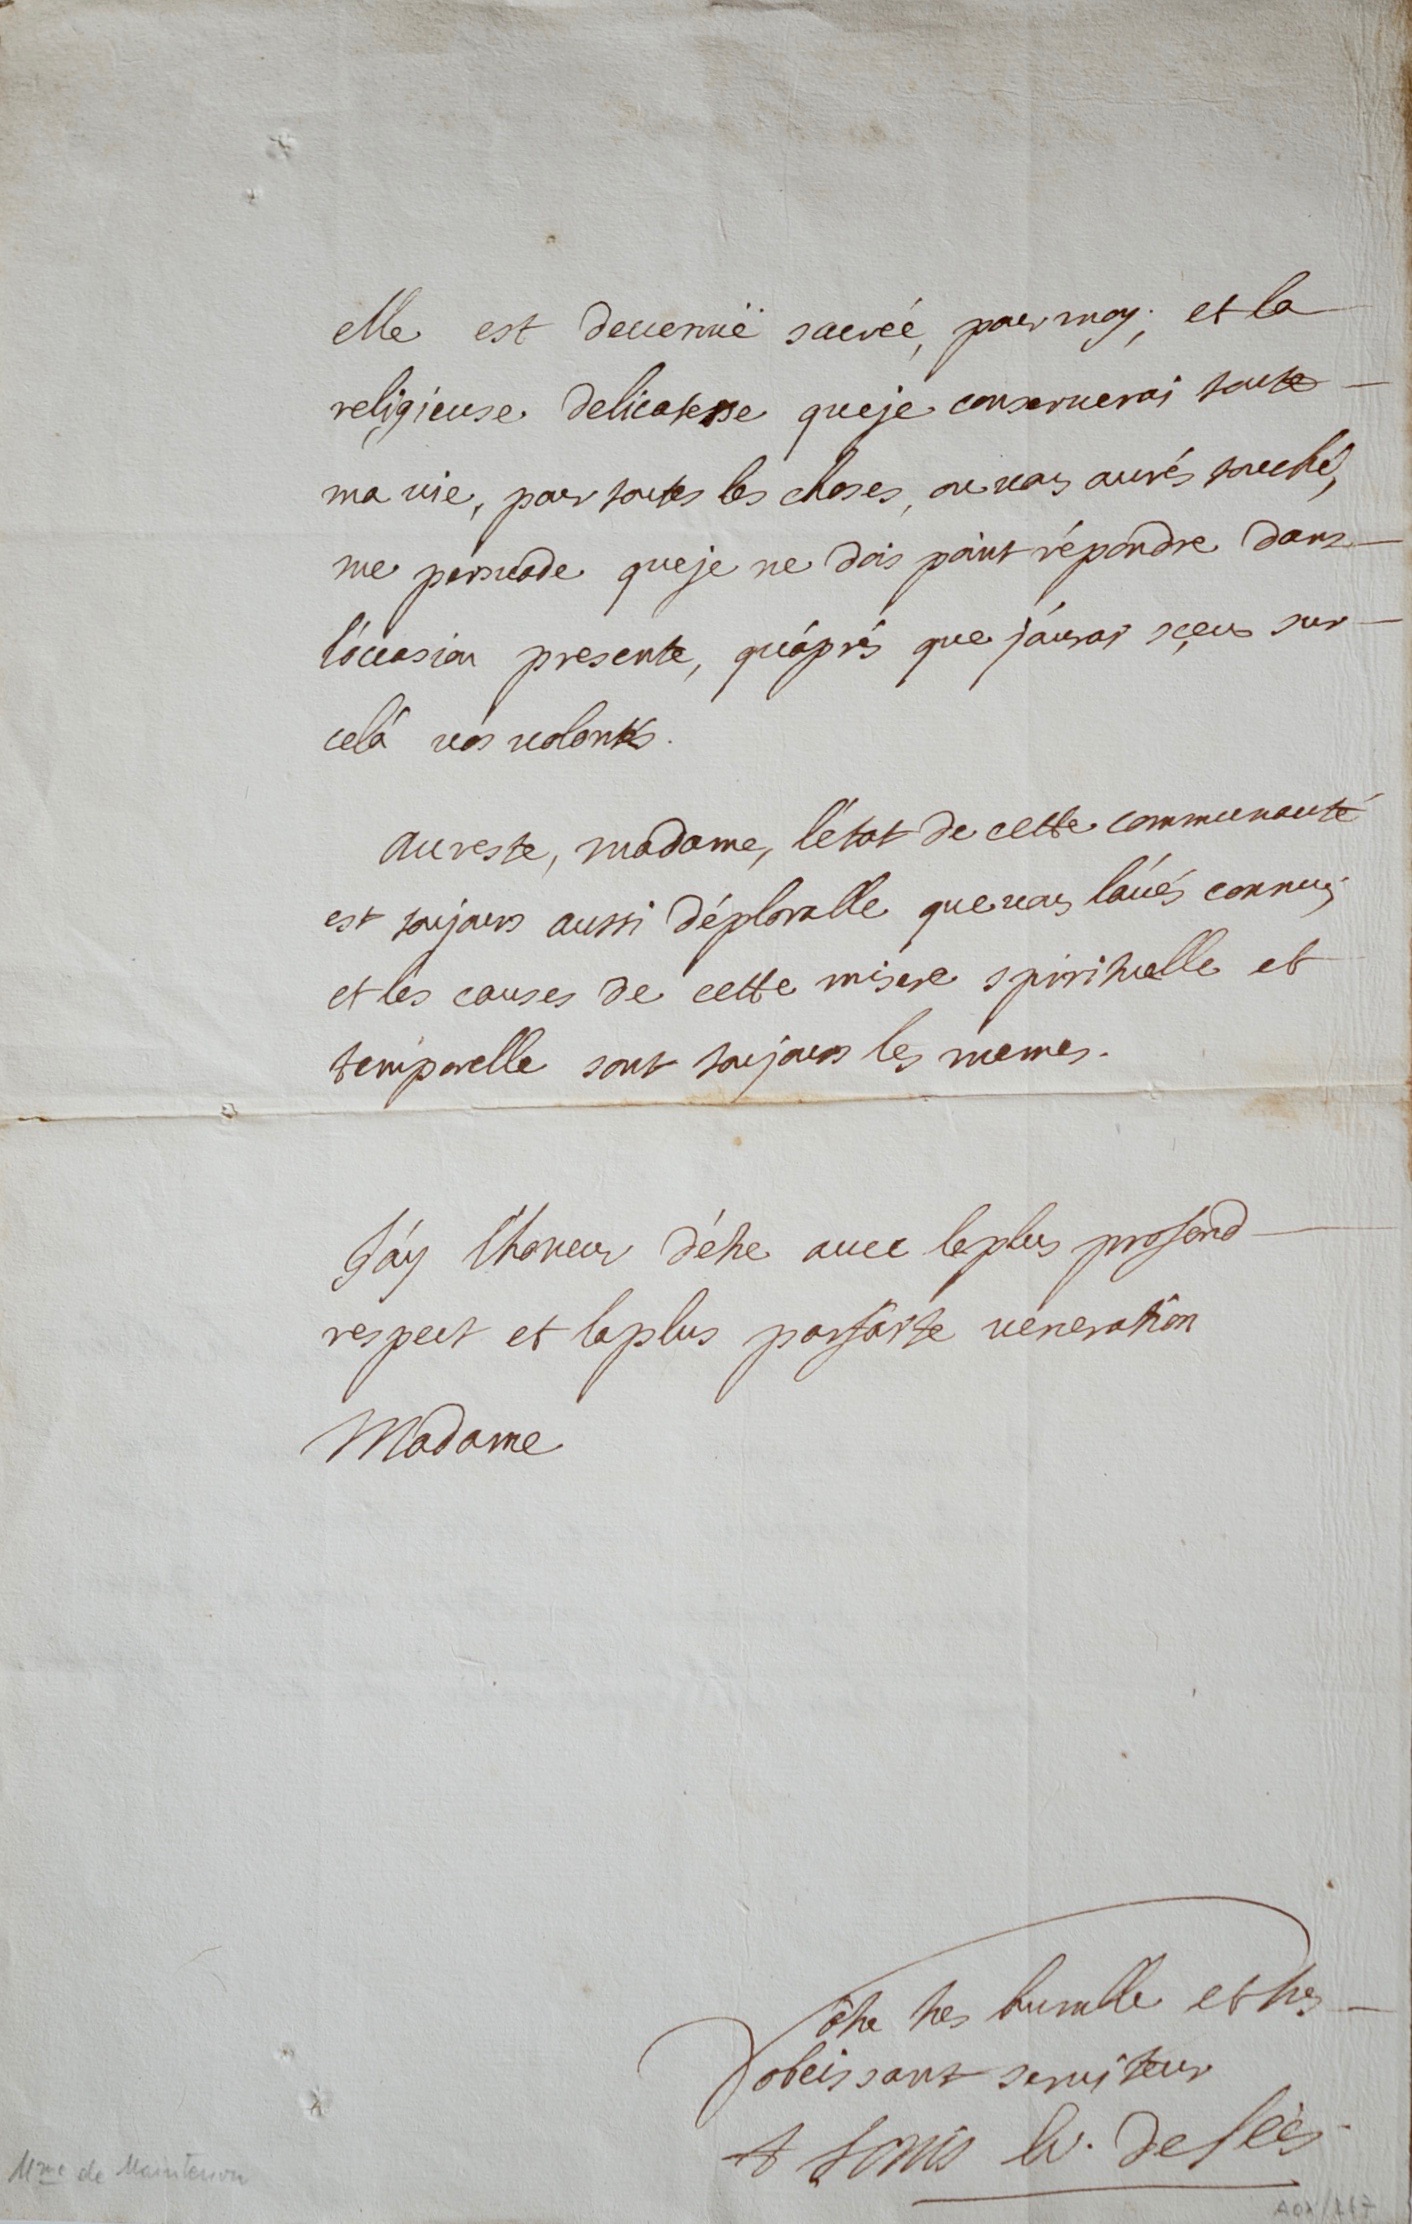 elle est devenuë sacréé, pour moy; et la
religieuse delicatesse que je conserverai toute
ma vie, pour toutes les choses, ou vous aurés touché,
me persuade que je ne dois point répondre dans
l'óccasion presente, qu'áprés que j'áurai sçeu sur
celá vos volontés.
Au reste, madame, l'état de cette communauté
est toujours aussi déploralle que vous l'avés connu;
et les causes de cette misere spirituelle et
temporelle sont toujours les memes.
J'áy l'honeur d'étre avec le plus profond
respect et la plus parfaite veneration
Madame
Vôtre tres humlle et tres
obeissant serviteur
† Louis Ev. de Séés
Mme de Maintenon